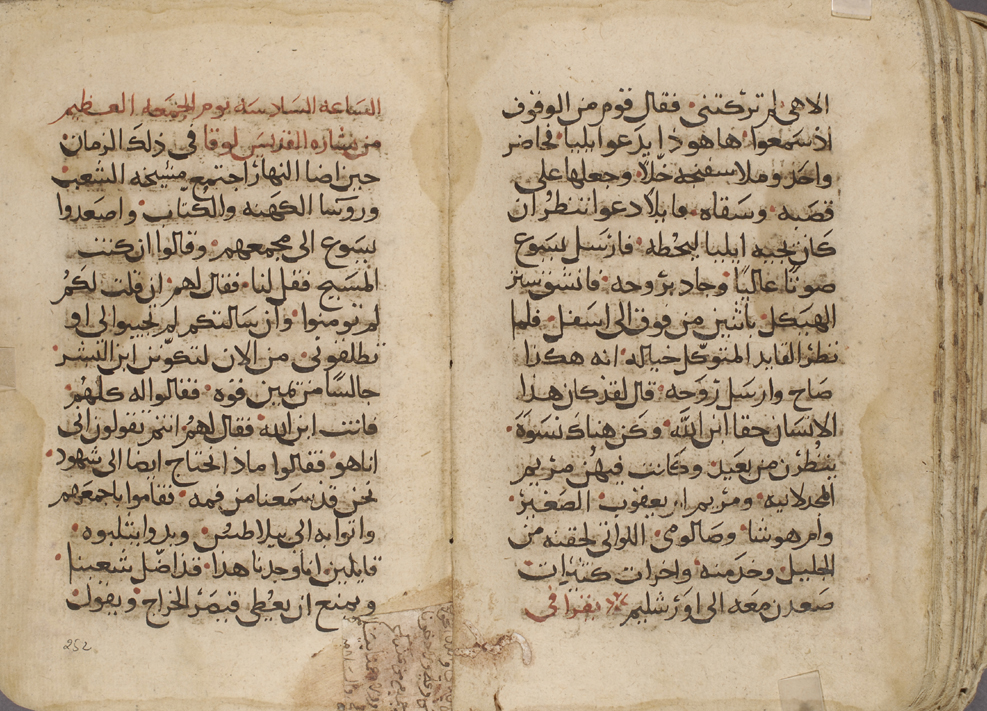 الاهي لم تركتني فقال قوم من الوقوف
اذ سمعوا ها هوذا يدعوا ايليا فحاضر
واحد وملا سفنجه خلًا وجعلها على
قصبه وسقاه قايلا دعوا ننظر ان
كان يجيه ايليا ليحطه فارسل يسوع
صوتًا عاليًا وجاد بروحه فانشق ستر
الهيكل باثنين من فوق الى اسفل فلما
نظر القايد المتوكل حياله انه هكذا
صاح وارسل روحه قال لقد كان هذا
الانسان حقا ابن الله وكن هناك نسوة
ينظرن من بعيد وكانت فيهن مريم
المجدلانيه ومريم ام يعقوب الصغير
وام هوشا وصالومي اللواتي لحقنه من
الجليل وخدمنه واخرات كثيرات
صعدن معه الى اورشليم يقرا في
الساعه السادسه يوم الجمعه العظيم
من بشاره القديس لوقا في ذلك الزمان
حين اضا النهار اجتمع مشيخه الشعب
وروسا الكهنه والكتاب واصعدوا
يسوع الى مجمعهم وقالوا ان كنت
المسيح فقل لنا فقال لهم ان قلت لكم
لم تومنوا وان سالتكم لم تجيبوا لي او
تطلقوني من الان لتكونن ابن البشر
جالسًا من يمين قوه فقالوا له كلهم
فانت ابن الله فقال لهم انتم تقولون اني
انا هو فقالوا ماذا نحتاج ايضا الى شهود
نحن قد سمعنا من فمه فقاموا باجمعهم
واتوا به الى بيلاطس وبدوا يثلبوه
قايلين انا وجدنا هذا قد اضل شعبنا
ويمنع ان يعطى قيصر الخراج ويقول
252